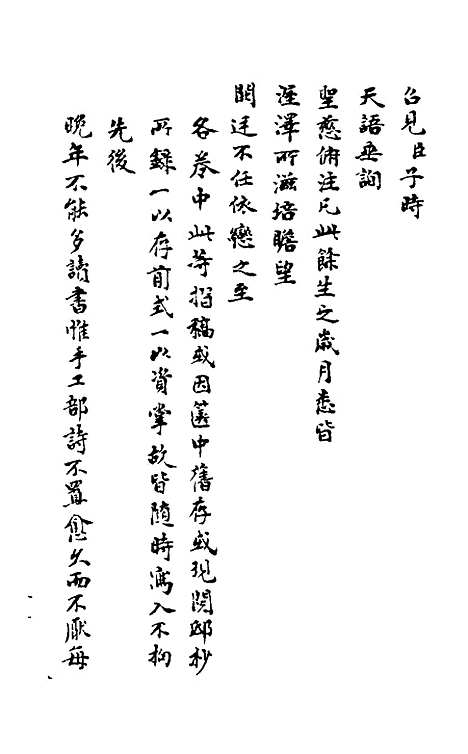 召見臣子時
天語垂詢
聖慈俯注凡此餘生之歲月悉皆
渥澤所滋培瞻望
闕廷不任依戀之至
各卷中此等摺稿或因篋中舊存或現閱邸抄
所錄一以存前式一以資掌故皆隨時寫入不拘
先後
晚年不能多讀書惟手工部詩不置愈久而不厭每